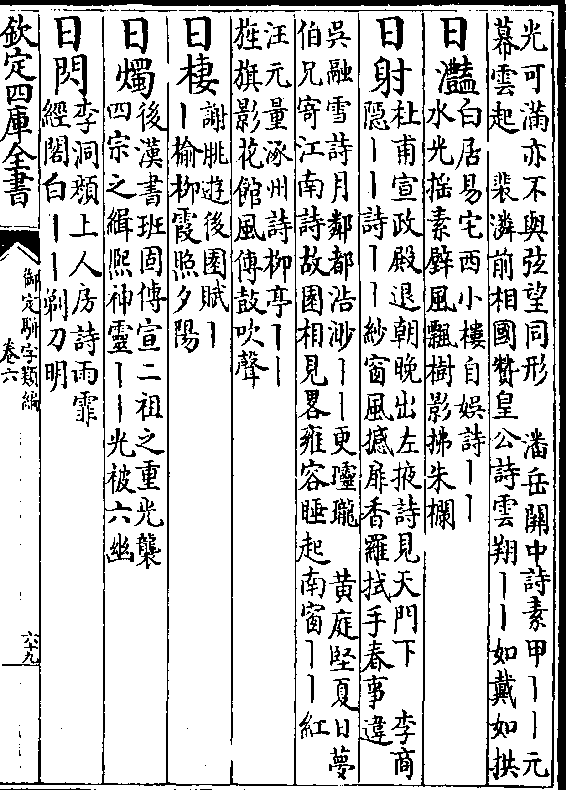 光可滿亦不與弦望同形　潘岳關中詩素甲丨丨元
幕雲起　裴潾前相國贊皇公詩雲翔丨丨如戴如拱
日灩白居易宅西小樓自娛詩丨丨
水光摇素壁風飄樹影拂朱欄
日射杜甫宣政殿退朝晚出左掖詩見天門下　李商
隱丨丨詩丨丨紗窗風撼扉香羅拭手春事違
吳融雪詩月鄰都浩渺丨丨更璢瓏　黄庭堅夏日夢
伯兄寄江南詩故園相見畧雍容睡起南窗丨丨紅
汪元量涿州詩柳亭丨丨
旌旗影花館風傳鼓吹聲
日棲謝朓遊後園賦丨
丨榆柳霞照夕陽
日燭後漢書班固傳宣二祖之重光襲
四宗之緝熙神靈丨丨光被六幽
日閃李洞頽上人房詩雨霏
經閣白丨丨剃刀明
欽定四庫全書
御定駢字類編
卷六
六十九